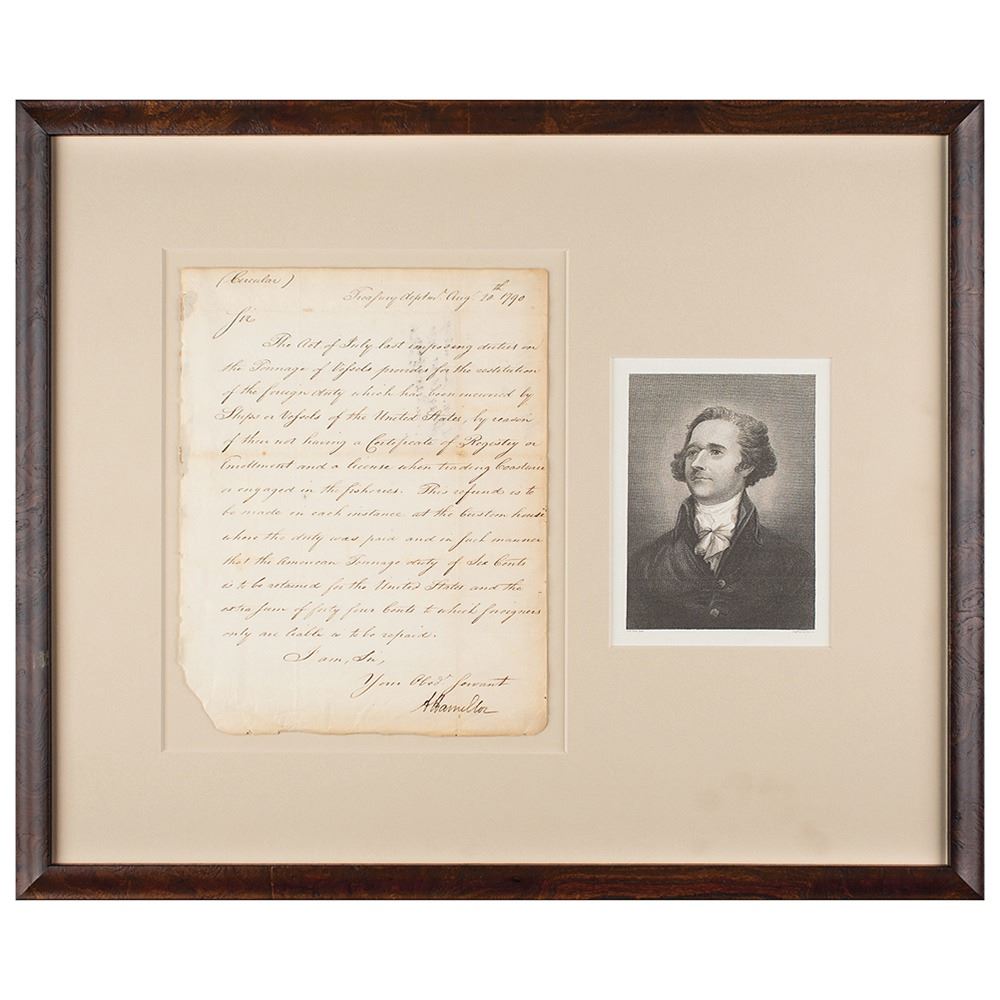 (Circular)
Treasury departmt. Augt. 20th 1790
Sir
The Act of July last imposing duties on
the Tonnage of Vessels provides for the restitution
of the foreign duty which has been incurred by
Ships or Vessels of the United States, by reason
of their not having a Certificate of Registry or
Enrollment and a license when trading Coastwise
or engaged in the fisheries. This refund is to
be made in each instance at the Custom house
where the duty was paid and in such manner
that the American Tonnage duty of Six Cents
is to be retained for the United States and the
extra sum of forty four Cents to which foreigners
only are liable is to be repaid.
I am, Sir,
Your Obedt. Servant
A Hamilton